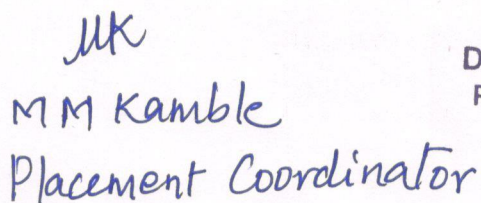 MK
D
MM Kamble
P
Placement Coordinator